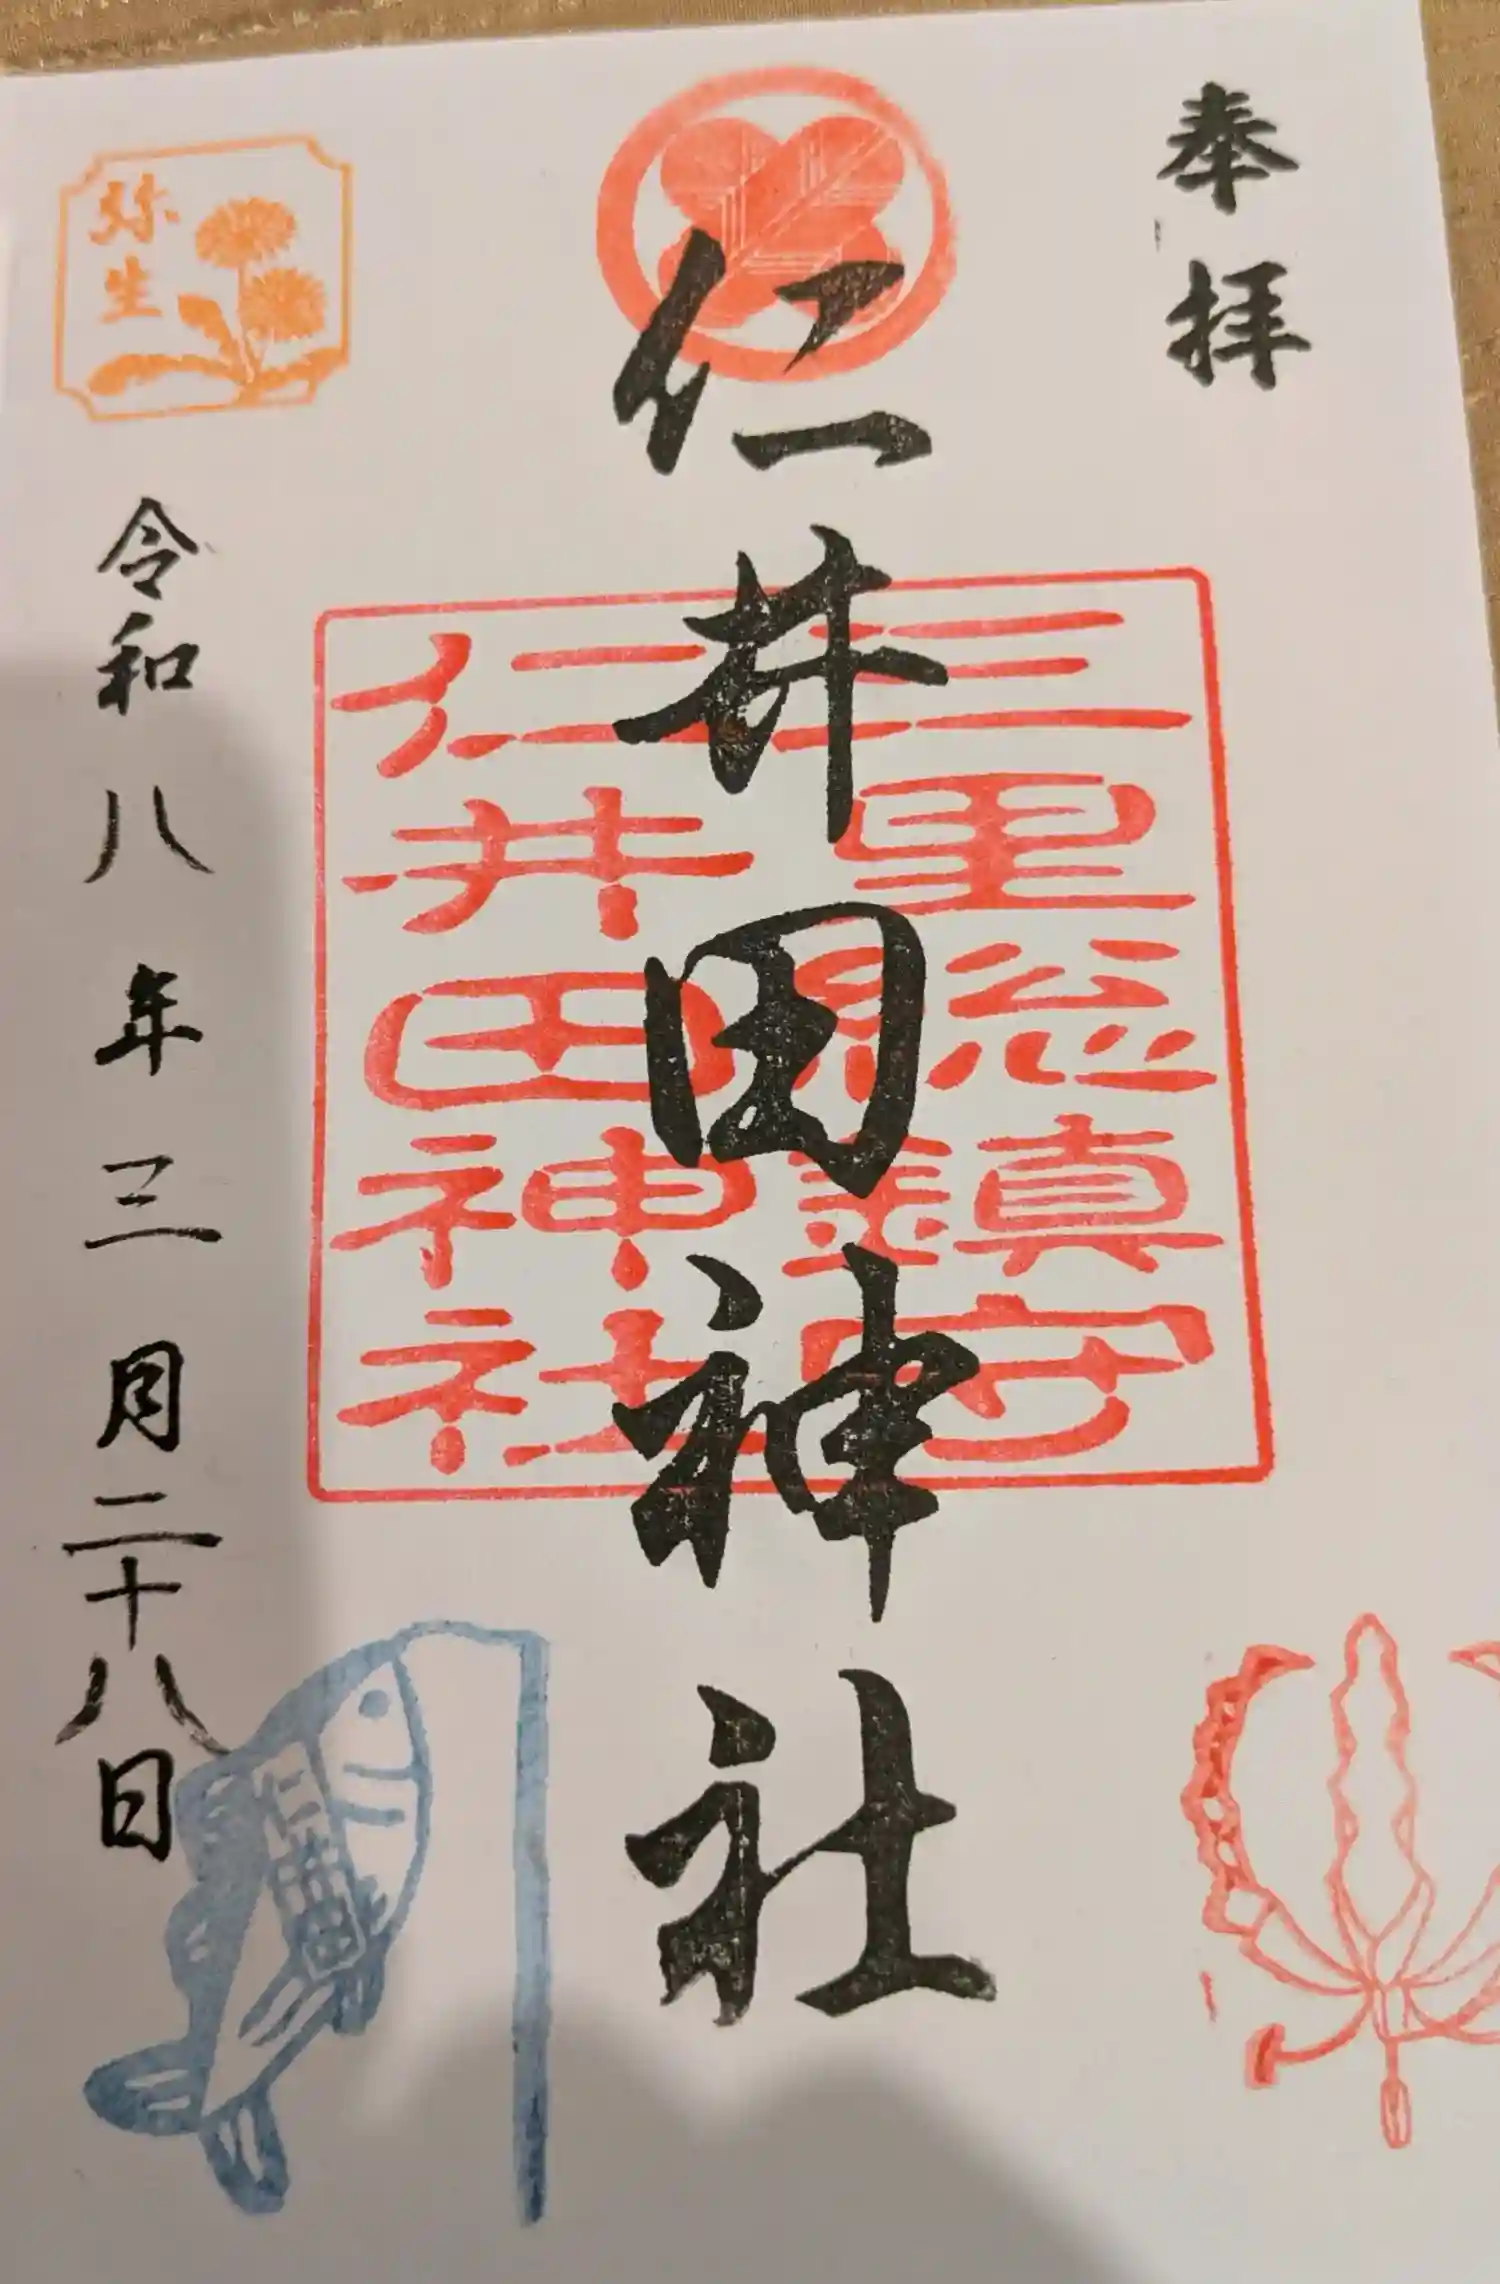 奉拝
仁井田神社
三里総鎮守
仁井田神社
弥生
令和八年三月二十八日
仁井田